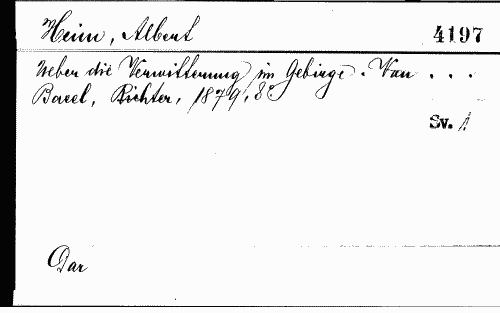 Heim, Albert 4197
Ueber die Verwitterung im Gebirge. Von . . .
Basel, Richter, 1879, 8°
Sv. 1.
Dar